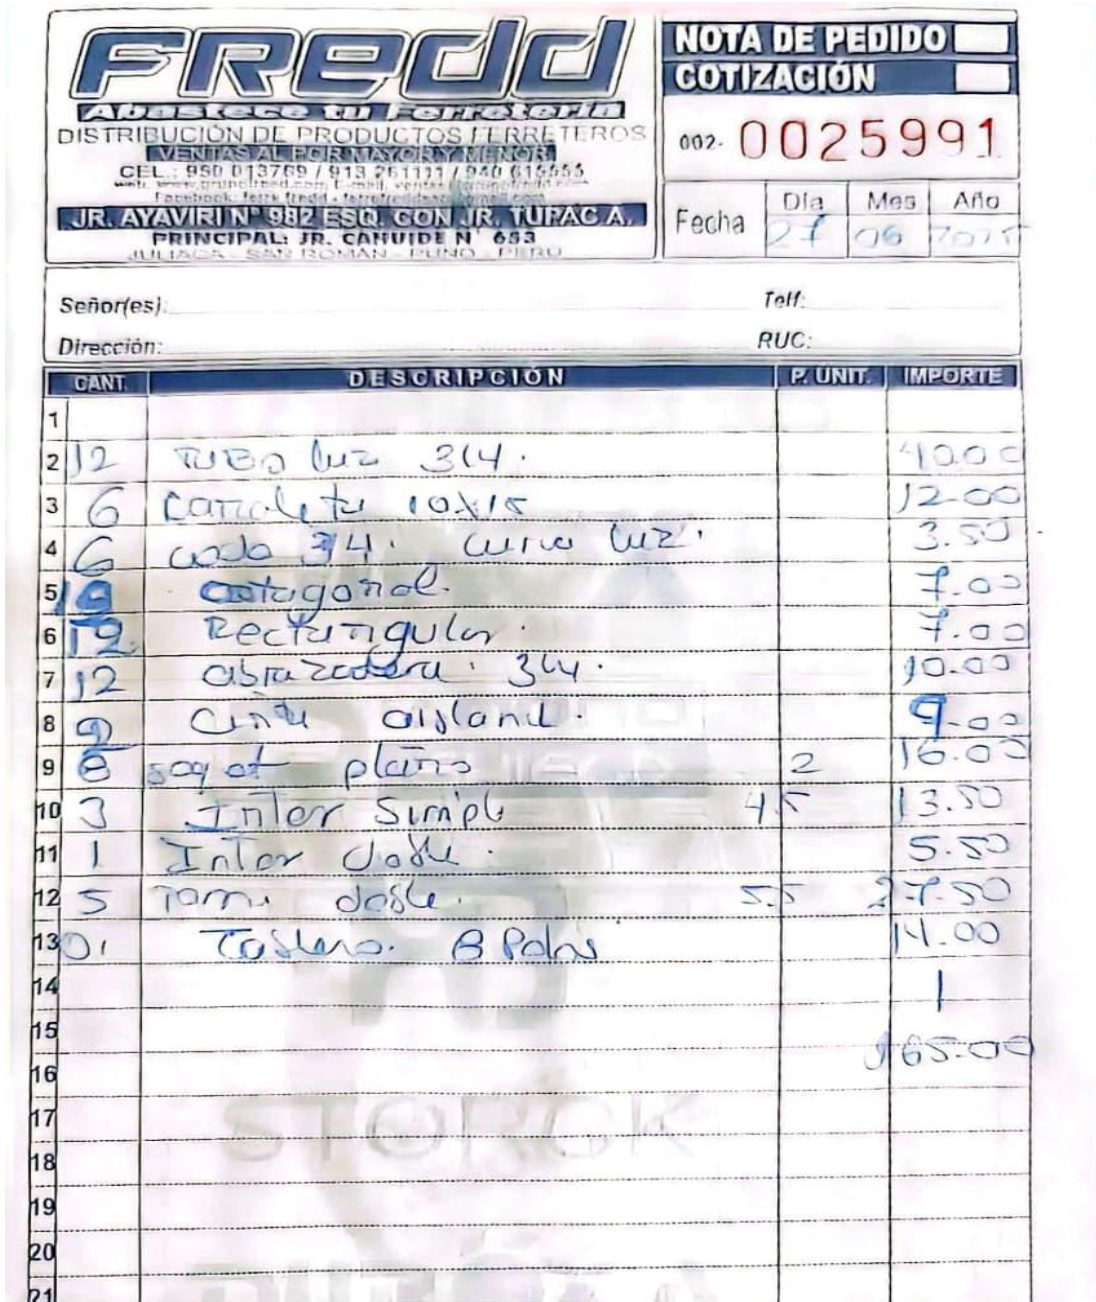 FREDD
Abastece tu Ferretería
DISTRIBUCIÓN DE PRODUCTOS FERRETEROS
VENTAS AL POR MAYOR Y MENOR
CEL.: 950 013769 / 913 261111 / 940 615555
JR. AYAVIRI N° 982 ESQ. CON JR. TUPAC A.
PRINCIPAL: JR. CAHUIDE N° 653
JULIACA - SAN ROMÁN - PUNO - PERU
NOTA DE PEDIDO
COTIZACIÓN
002- 0025991
Fecha Día Mes Año
27 06 2025
Señor(es): Telf:
Dirección: RUC:
CANT. DESCRIPCIÓN P. UNIT. IMPORTE
1
2 12 TUBO luz 3/4. 40.00
3 6 Canaleta 10x15 12.00
4 6 codo 3/4. curva luz. 3.50
5 octogonal. 7.00
6 12 Rectangular. 7.00
7 12 abrazadera. 3/4. 10.00
8 9 cinta aislant. 9.00
9 8 soqet plano 2 16.00
10 3 Inter Simple 4.5 13.50
11 1 Inter doble. 5.50
12 5 Tom. doble. 5.5 27.50
13 01 Tablero. 8 Polos 14.00
14
15
165.00
16
17
18
19
20
21
STORCK